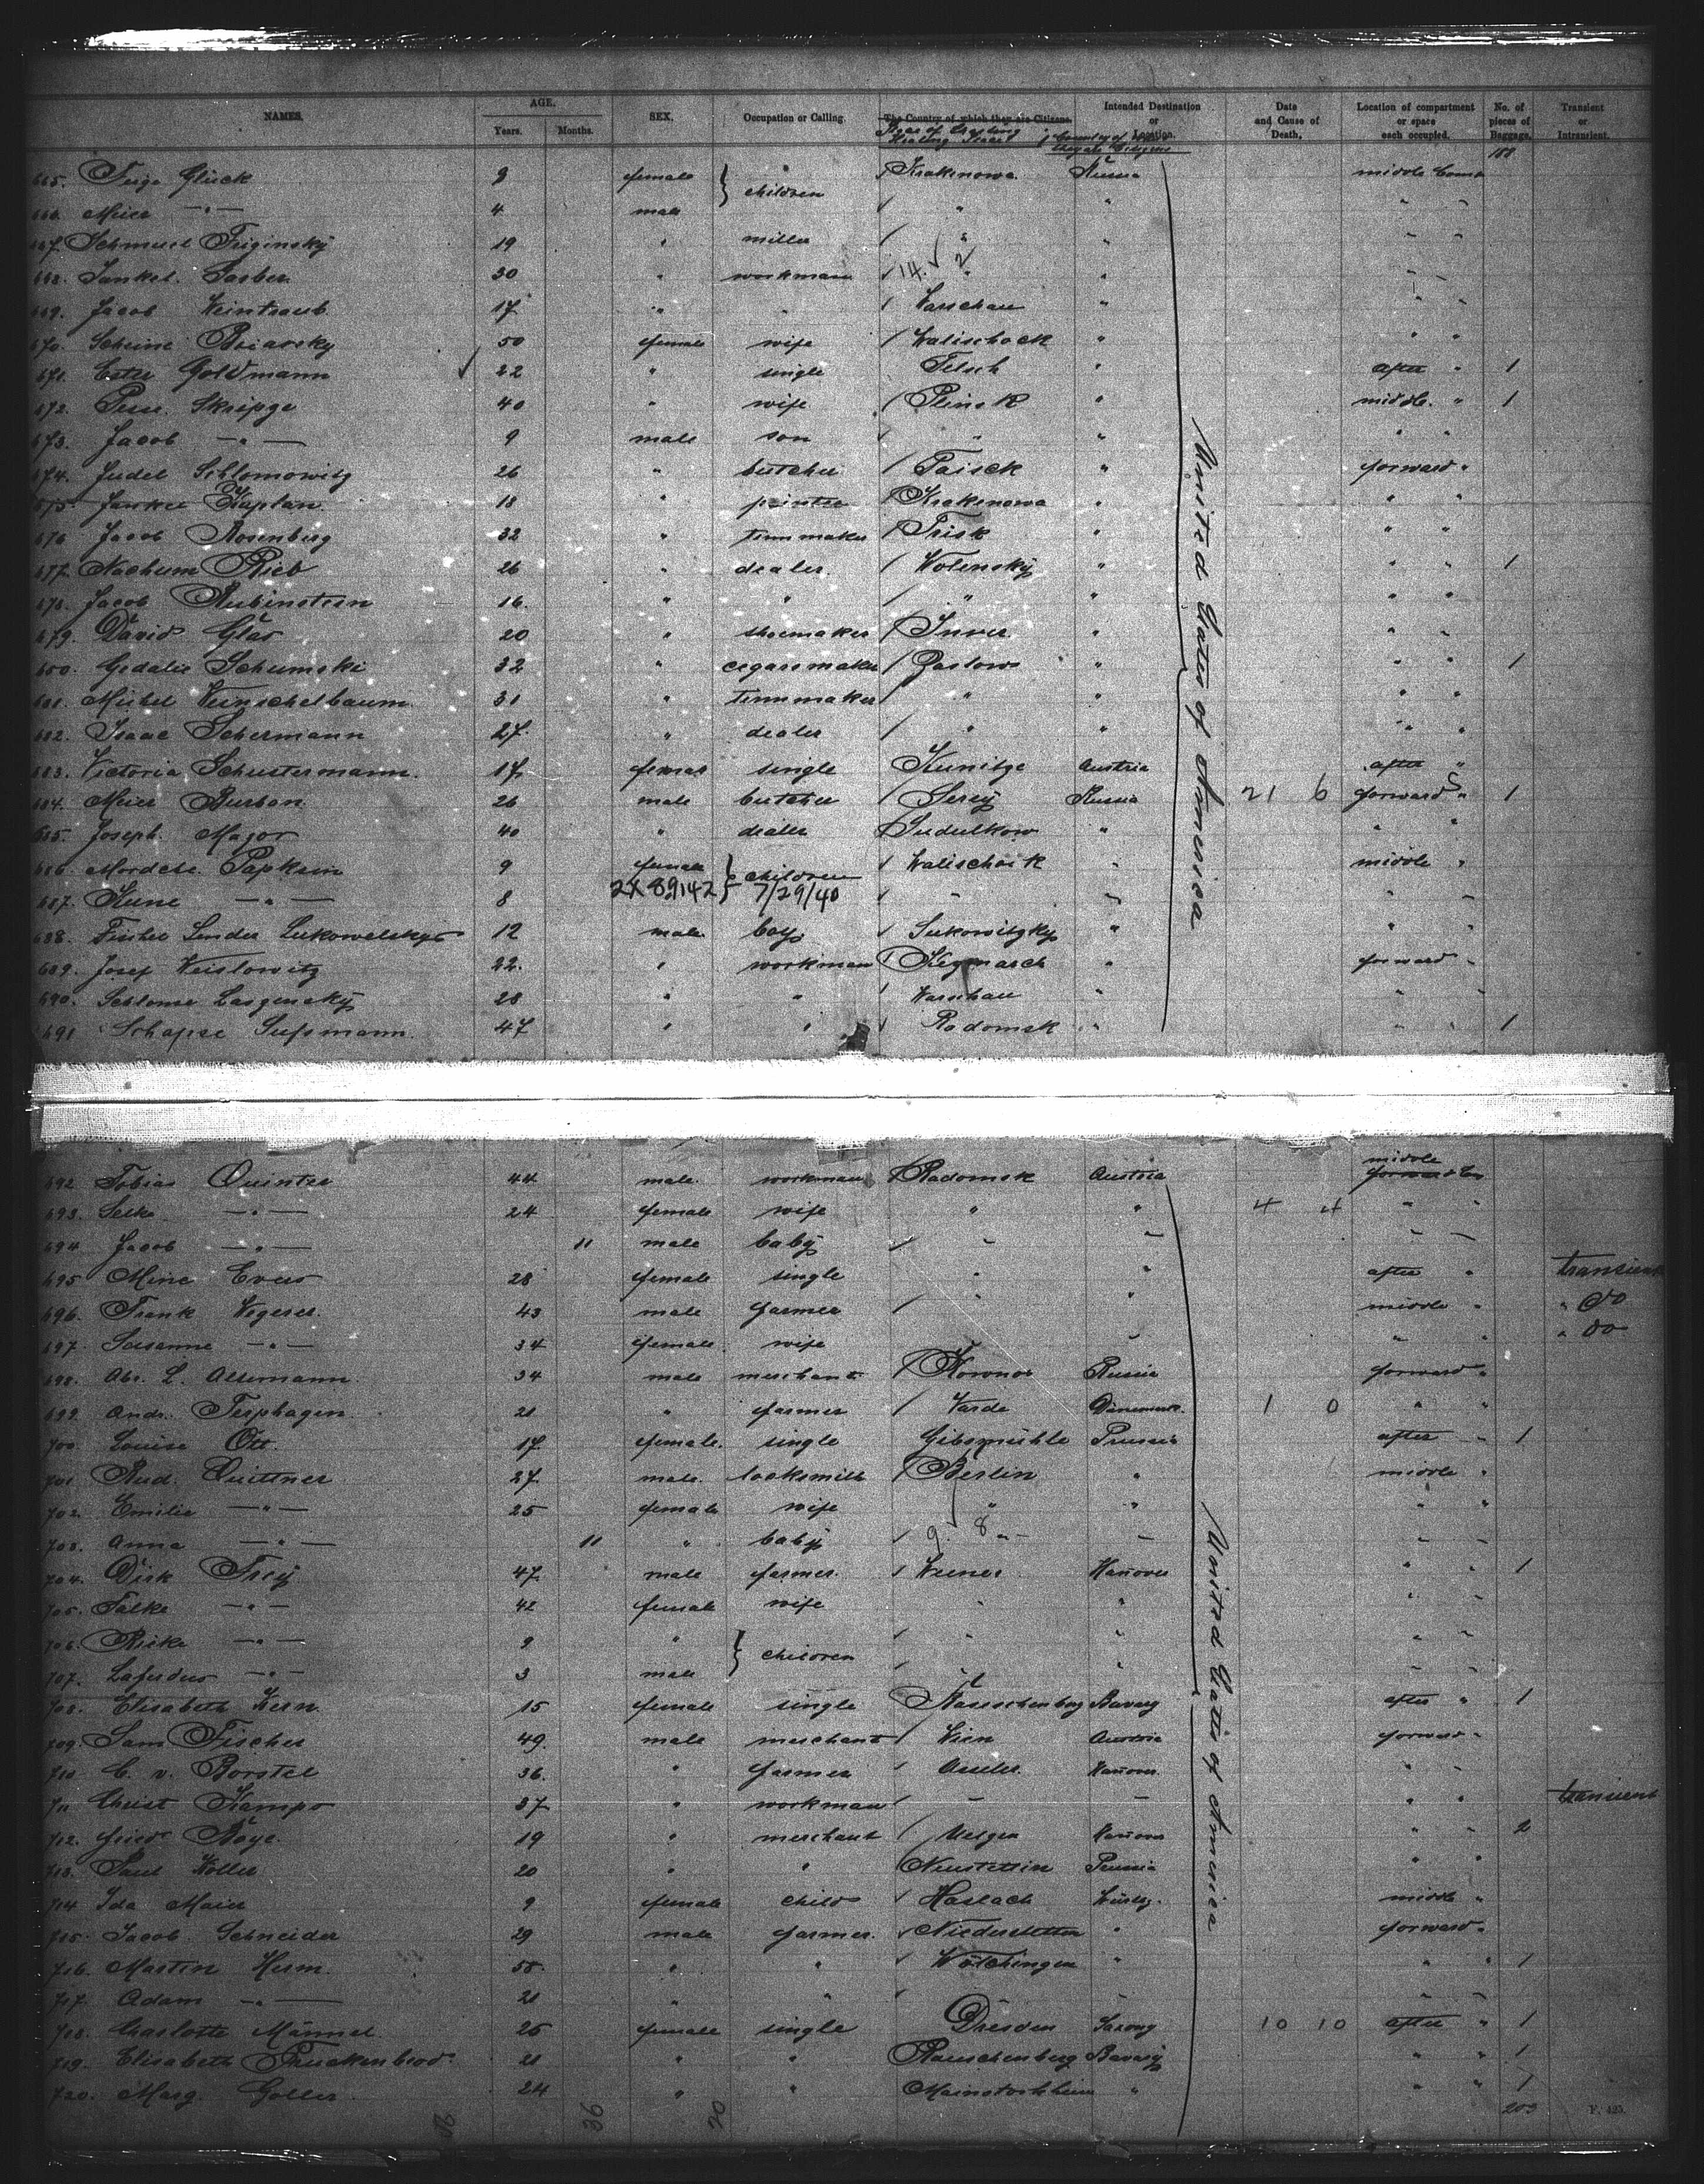 NAMES. AGE. Years. Months. SEX. Occupation or Calling. The Country of which they are Citizens. Intended Destination or Location. Date and Cause of Death. Location of compartment or space each occupied. No. of pieces of Baggage. Transient or Intransient.
188
665. Feige Glück 8 female } children " Krakenowa Russia middle Comp
666. Meier —"— 4 male " " " "
667. Schmuel Friginsky 19 " miller " " " "
668. Jankel Farber 30 " workman 14 2 " " " "
669. Jacob Weintraub 17 " " Warschau " " "
670. Scheine Briarsky 50 female wife Walischock " " "
671. Ester Goldmann 22 " single Telsch " after " 1
672. Pesse Skripge 40 " wife Plinsk " middle " 1
673. Jacob —"— 9 male son " " " "
674. Judel Schlomowitz 26 " butcher Taisck " forward "
675. Jankel Kaplan 18 " printer Krakenowa " " "
676 Jacob Rosenberg 32 " tinnmaker Trisk " " "
677. Nachum Rieb 26 " dealer Wolensky " " " 1
678. Jacob Rubinstein 16. " " " " " "
679. David Glas 20 " shoemaker Inver " " "
680. Gedalie Schumski 32 " cegarsmaker Paslow " " " 1
681. Michel Weinschelbaum 31 " tinnmaker " " " "
682. Isaac Schermann 27. " dealer " " " "
683. Victoria Schustermann. 17 female single Kunitze Austria after "
684. Meier Burban 26 male butcher Serey Russia 21 6 forward " 1
685. Joseph Mazor 40 " dealer Sudulkow " " "
686. Mordche Papksin 9 female } children Walischock " middle "
687. Kune —"— 8 2X 89142 7/29/40 " " " "
688. Fischel Sender Lukowelsky 12 male boy Sukowitzky " " "
689. Josef Weislowitz 22. " workman Kezmarck " forward "
690. Schlome Lasgensky 28 " " Warschau " " "
691 Schapse Sufsmann. 47 " " Radomsk " " " 1
United States of America
692 Tobias Quinter 44 male workman Radomsk Austria middle forward Co
693. Selke —"— 24 female wife " " 4 4 " "
694 Jacob —"— 11 male baby " " " "
695 Mine Evers 28 female single " " after " transient
696. Frank Wegerer 43 male farmer " " middle " " do
697. Susanne —"— 34 female wife " " " " do
698. Abr. L. Altermann 34 male merchant Kowno Russia forward "
699. Andr. Terphagen 21 " farmer Varde Dänemark. 1 0 " "
700. Louise Ott 17 female. single Gibsmühle Prussia after " 1
701 Rud. Quittner 27 male. locksmith Berlin " middle "
702. Emilie —"— 25 female wife " " " "
703. Anna —"— 11 " baby 9 8 " " " "
704. Dirk Frey 47 male farmer. Weener Hanover " " 1
705. Talke —"— 42 female wife " " " "
706. Rieke —"— 9 " } children " " " "
707. —"— 3 male " " " "
708. Elisabeth Kern 15 female single Rauschenberg Bavary after " 1
709. Sam Fischer 49. male merchant Wien Austria forward "
710 C. v. Borstel 36. " farmer Asseler Hanover. " "
711 Christ Kampo 37 " workman — — " " transient
712. Fried Röye 19 " merchant Uelzen Hanover " " 2
713. Paul Koller 20 " " Neustettin Prussia " "
714 Ida Maier 9 female child Haslach Würtbg. middle "
715. Jacob Schneider 29 male farmer. Niederstetten " forward "
716. Martin Herm. 58 " " Wölchingen " " " 1
717. Adam —"— 21 " " " " " "
718. Charlotte Männel 26 female single Dresden Saxony 10 10 after " 1
719. Elisabeth Truckenbrod 21 " " Rauschenberg Bavary " " 1
720. Marg. Goller 24 " " Mainstockheim " " " 1
United States of America
36 20 203 F. 425.